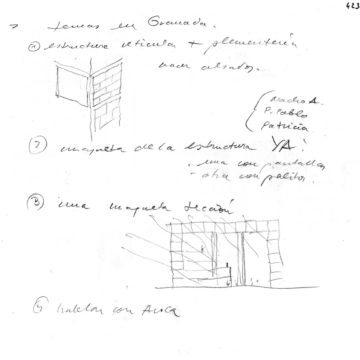 423
→ temas en Granada.
① estructura reticular + plementería
hacer alzados.
Nacho A.
P. Pablo
Patricia
② maqueta de la estructura YA!
. una con pantallas
. otra con palitos.
③ una maqueta sección
④ hablar con